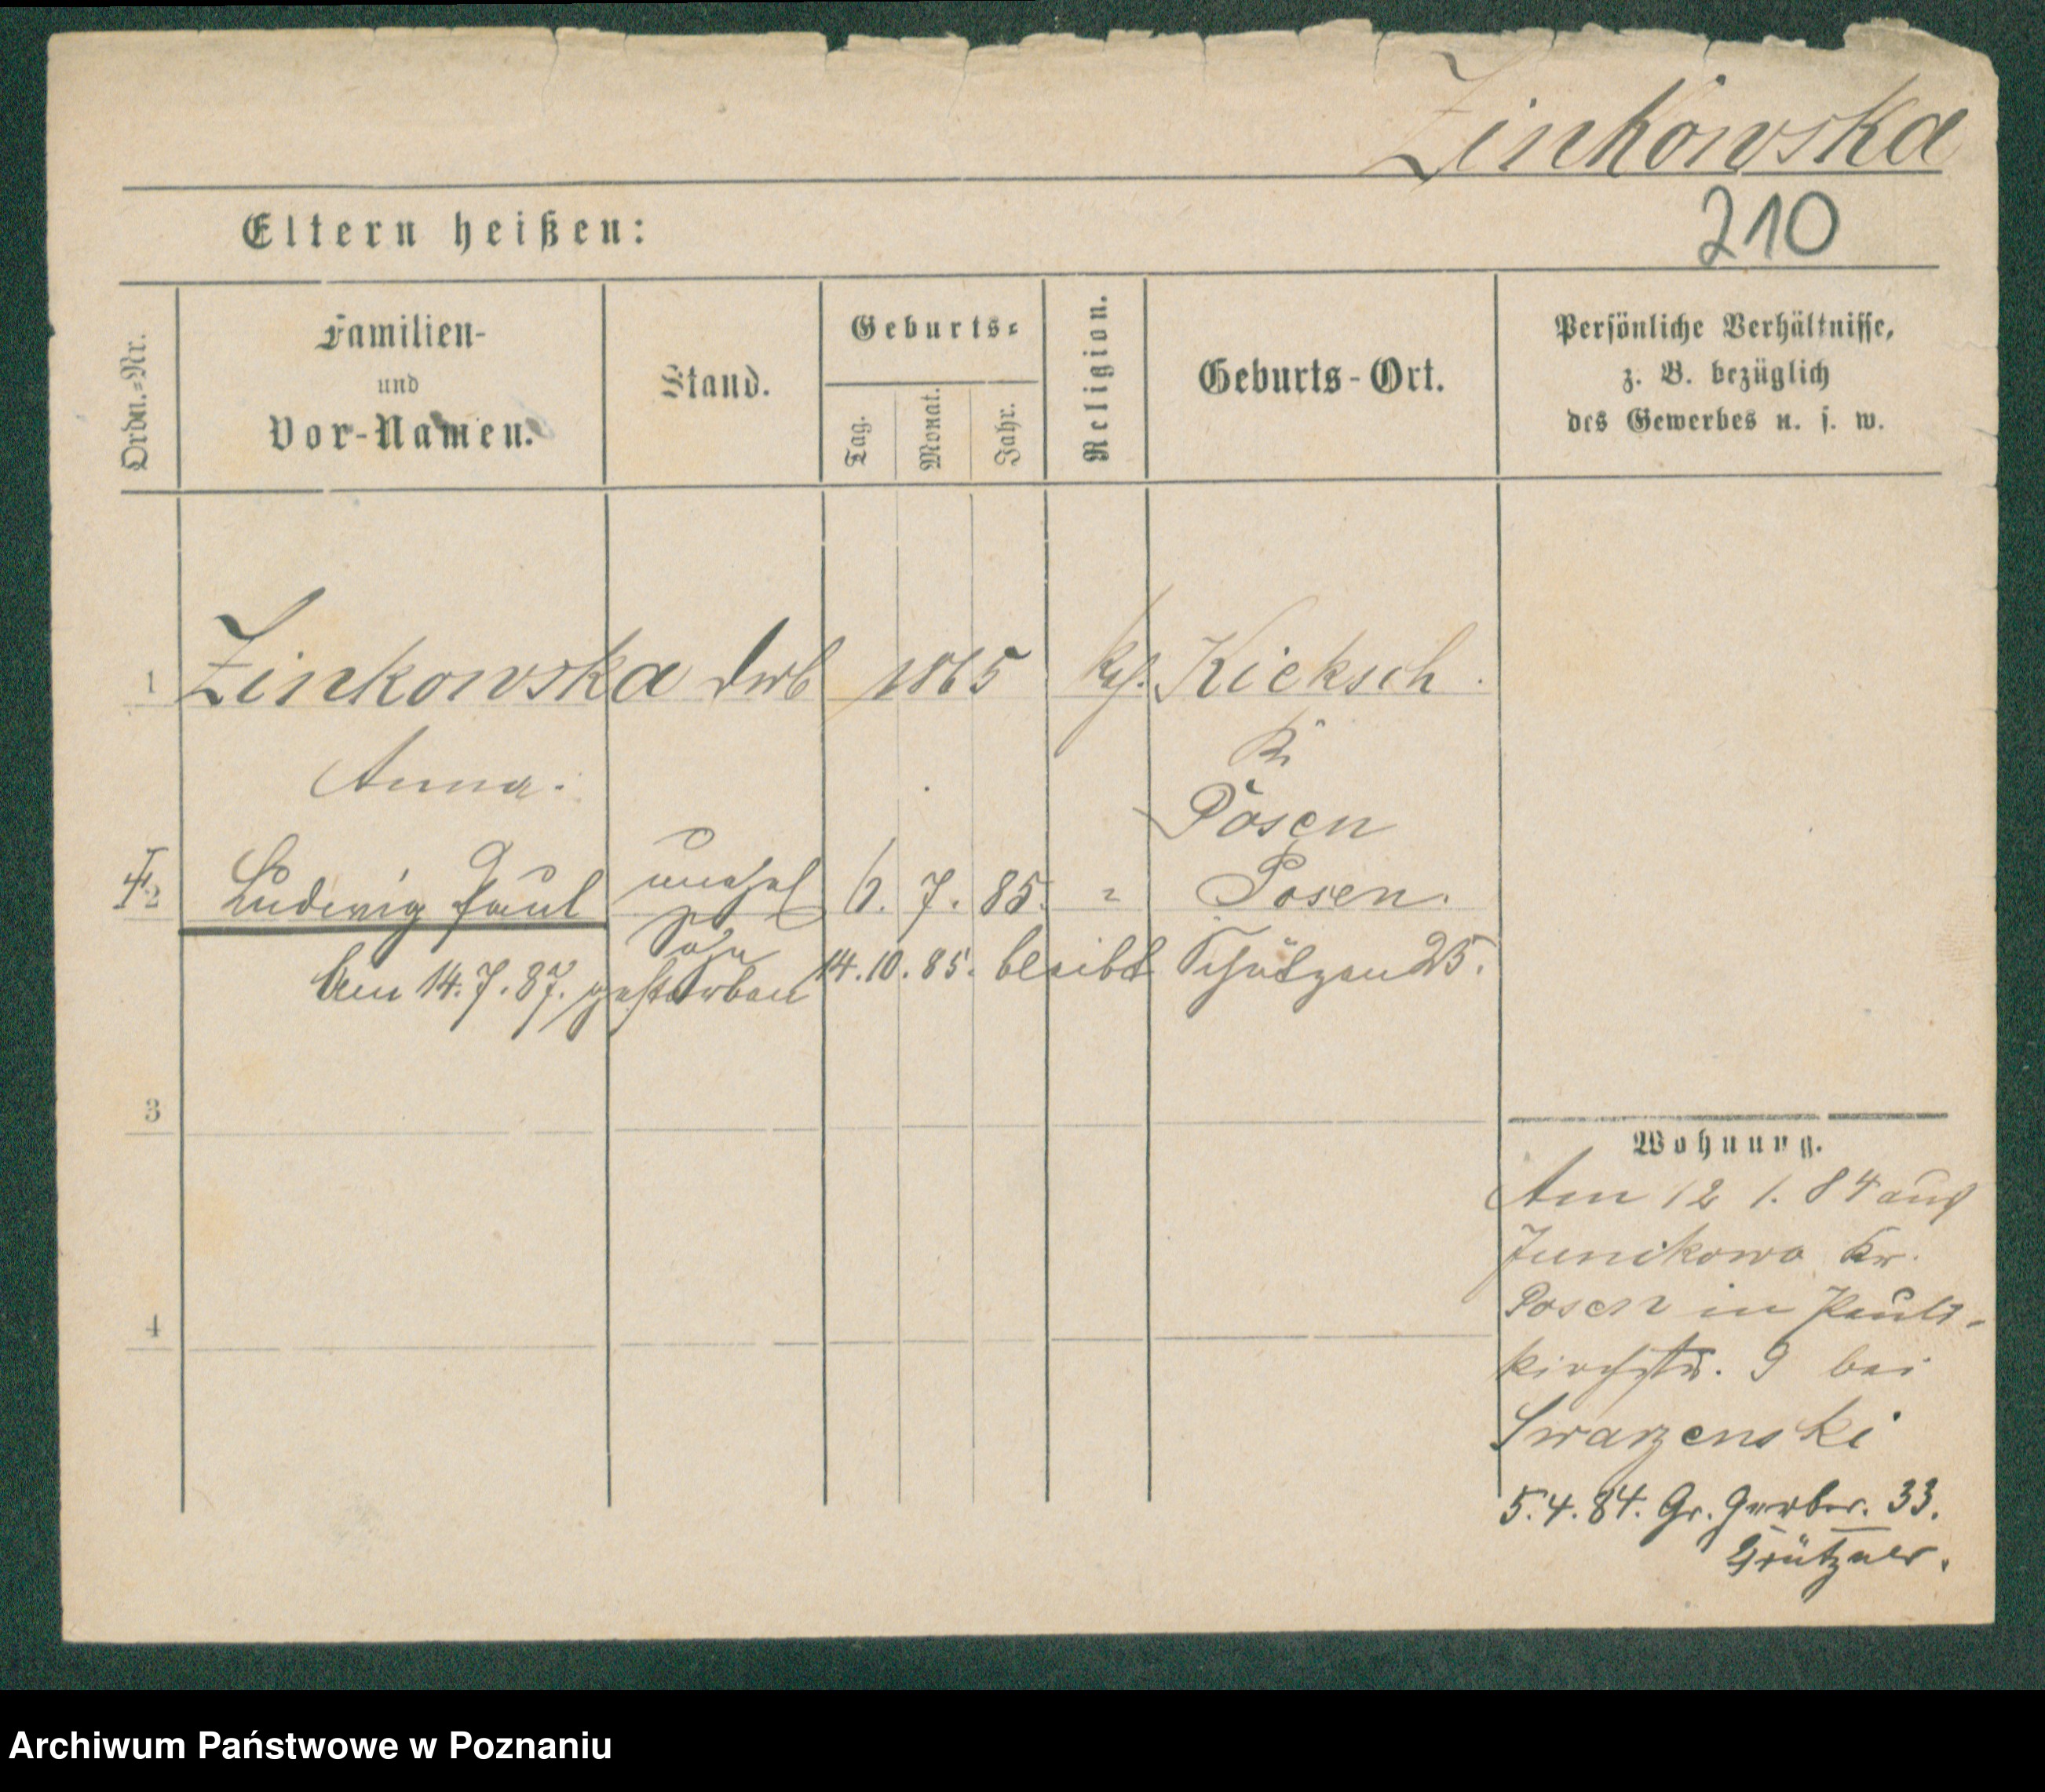 Zinkowska
210
Eltern heißen:
Ordn.-Nr.
Familien-
und
Vor-Namen.
Stand.
Geburts-
Tag.
Monat.
Jahr.
Religion.
Geburts-Ort.
Persönliche Verhältnisse,
z. B. bezüglich
des Gewerbes u. s. w.
1 Zinkowska 1865 Kath. Kieksch.
Anna. Kr
Posen
2 Ludwig Paul unehel 6. 7. 85. " Posen.
Sohn
Am 14.7.87. gestorben 14.10.85. bleibt Schützen 25.
3
4
Wohnung.
Am 12 1. 84 aus
Junikowo Kr.
Posen in Pauli-
kirchstr. 9 bei
Swarzenski
5.4.84. Gr. Gerber. 33.
Grützner.
Archiwum Państwowe w Poznaniu